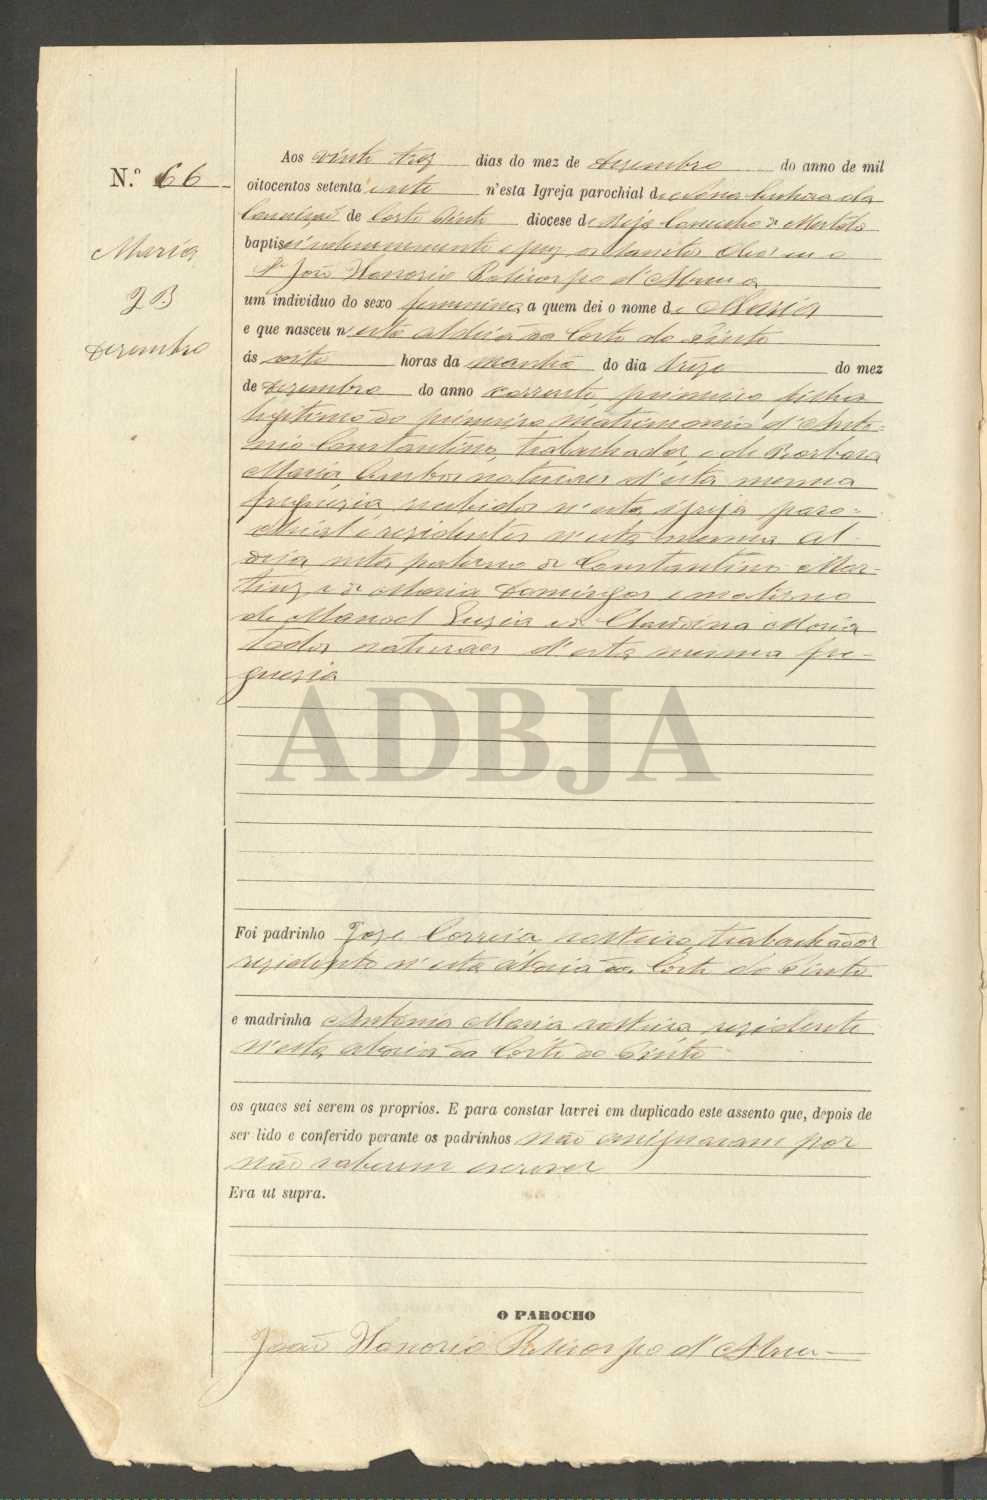 N.º 66
Maria
23
Dezembro
Aos vinte trez dias do mez de Dezembro do anno de mil
oitocentos setenta n'esta Igreja parochial de Nossa Senhora da
Conceição de Corte Pinto diocese de Beja Concelho de Mertola
baptisei solemnemente e puz os Santos Oleos eu o
Pe João Honorio Policarpo d'Abreu a
um individuo do sexo feminino, a quem dei o nome de Maria
e que nasceu n'esta aldeia da Corte do Pinto
ás oito horas da manhã do dia treze do mez
de Dezembro do anno corrente, primeira filha
legitima do primeiro matrimonio d'Anto-
nio Constantino, trabalhador, e de Barbara
Maria, ambos naturaes d'esta mesma
freguezia, recebidos n'esta igreja paro-
chial e residentes n'esta mesma al-
deia, neta paterna de Constantino Mar-
tins, e de Maria Domingos e materna
de Manoel Luzia e de Claudina Maria
todos naturaes d'esta mesma fre-
guezia
ADBJA
Foi padrinho Joze Correia, solteiro, trabalhador
residente n'esta aldeia da Corte do Pinto
e madrinha Antonia Maria solteira, rezidente
n'esta aldeia da Corte do Pinto
os quaes sei serem os proprios. E para constar lavrei em duplicado este assento que, depois de
ser lido e conferido perante os padrinhos não assignaram por
não saberem escrever
Era ut supra.
O PAROCHO
João Honorio Policarpo d'Abreu